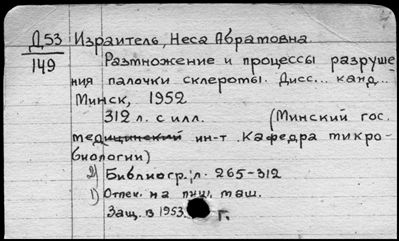 Д53 Израитель, Неса Абрамовна.
149 Размножение и процессы разруше-
ния палочки склеромы. Дисс... канд...
Минск, 1952
312 л. с илл. (Минский гос.
медицинский ин-т. Кафедра микро-
биологии)
2) Библиогр.: л. 265-312
1) Отпеч. на пиш. маш.
Защ. в 1953 г.